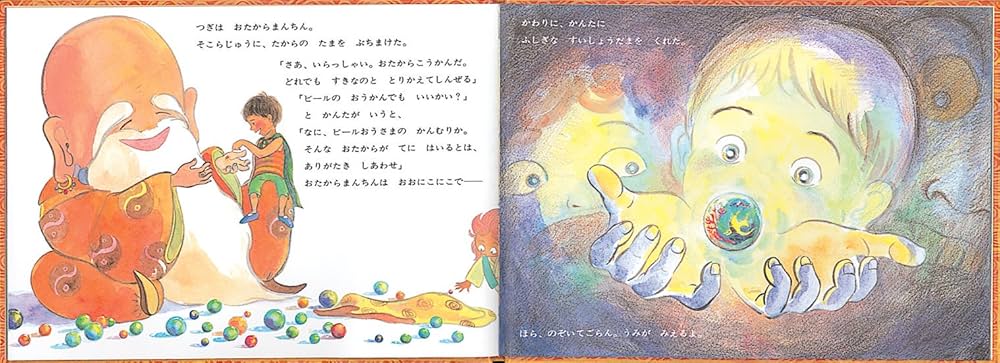 つぎは おたからまんちん。
そこらじゅうに、たからの たまを ぶちまけた。
「さあ、いらっしゃい。おたからこうかんだ。
どれでも すきなのと とりかえてしんぜる」
「ビールの おうかんでも いいかい?」
と かんたが いうと、
「なに、ビールおうさまの かんむりか。
そんな おたからが てに はいるとは、
ありがたき しあわせ」
おたからまんちんは おおにこにこで——
かわりに、かんたに
ふしぎな すいしょうだまを くれだ。
ほら、のぞいてごらん。うみが みえるよ。